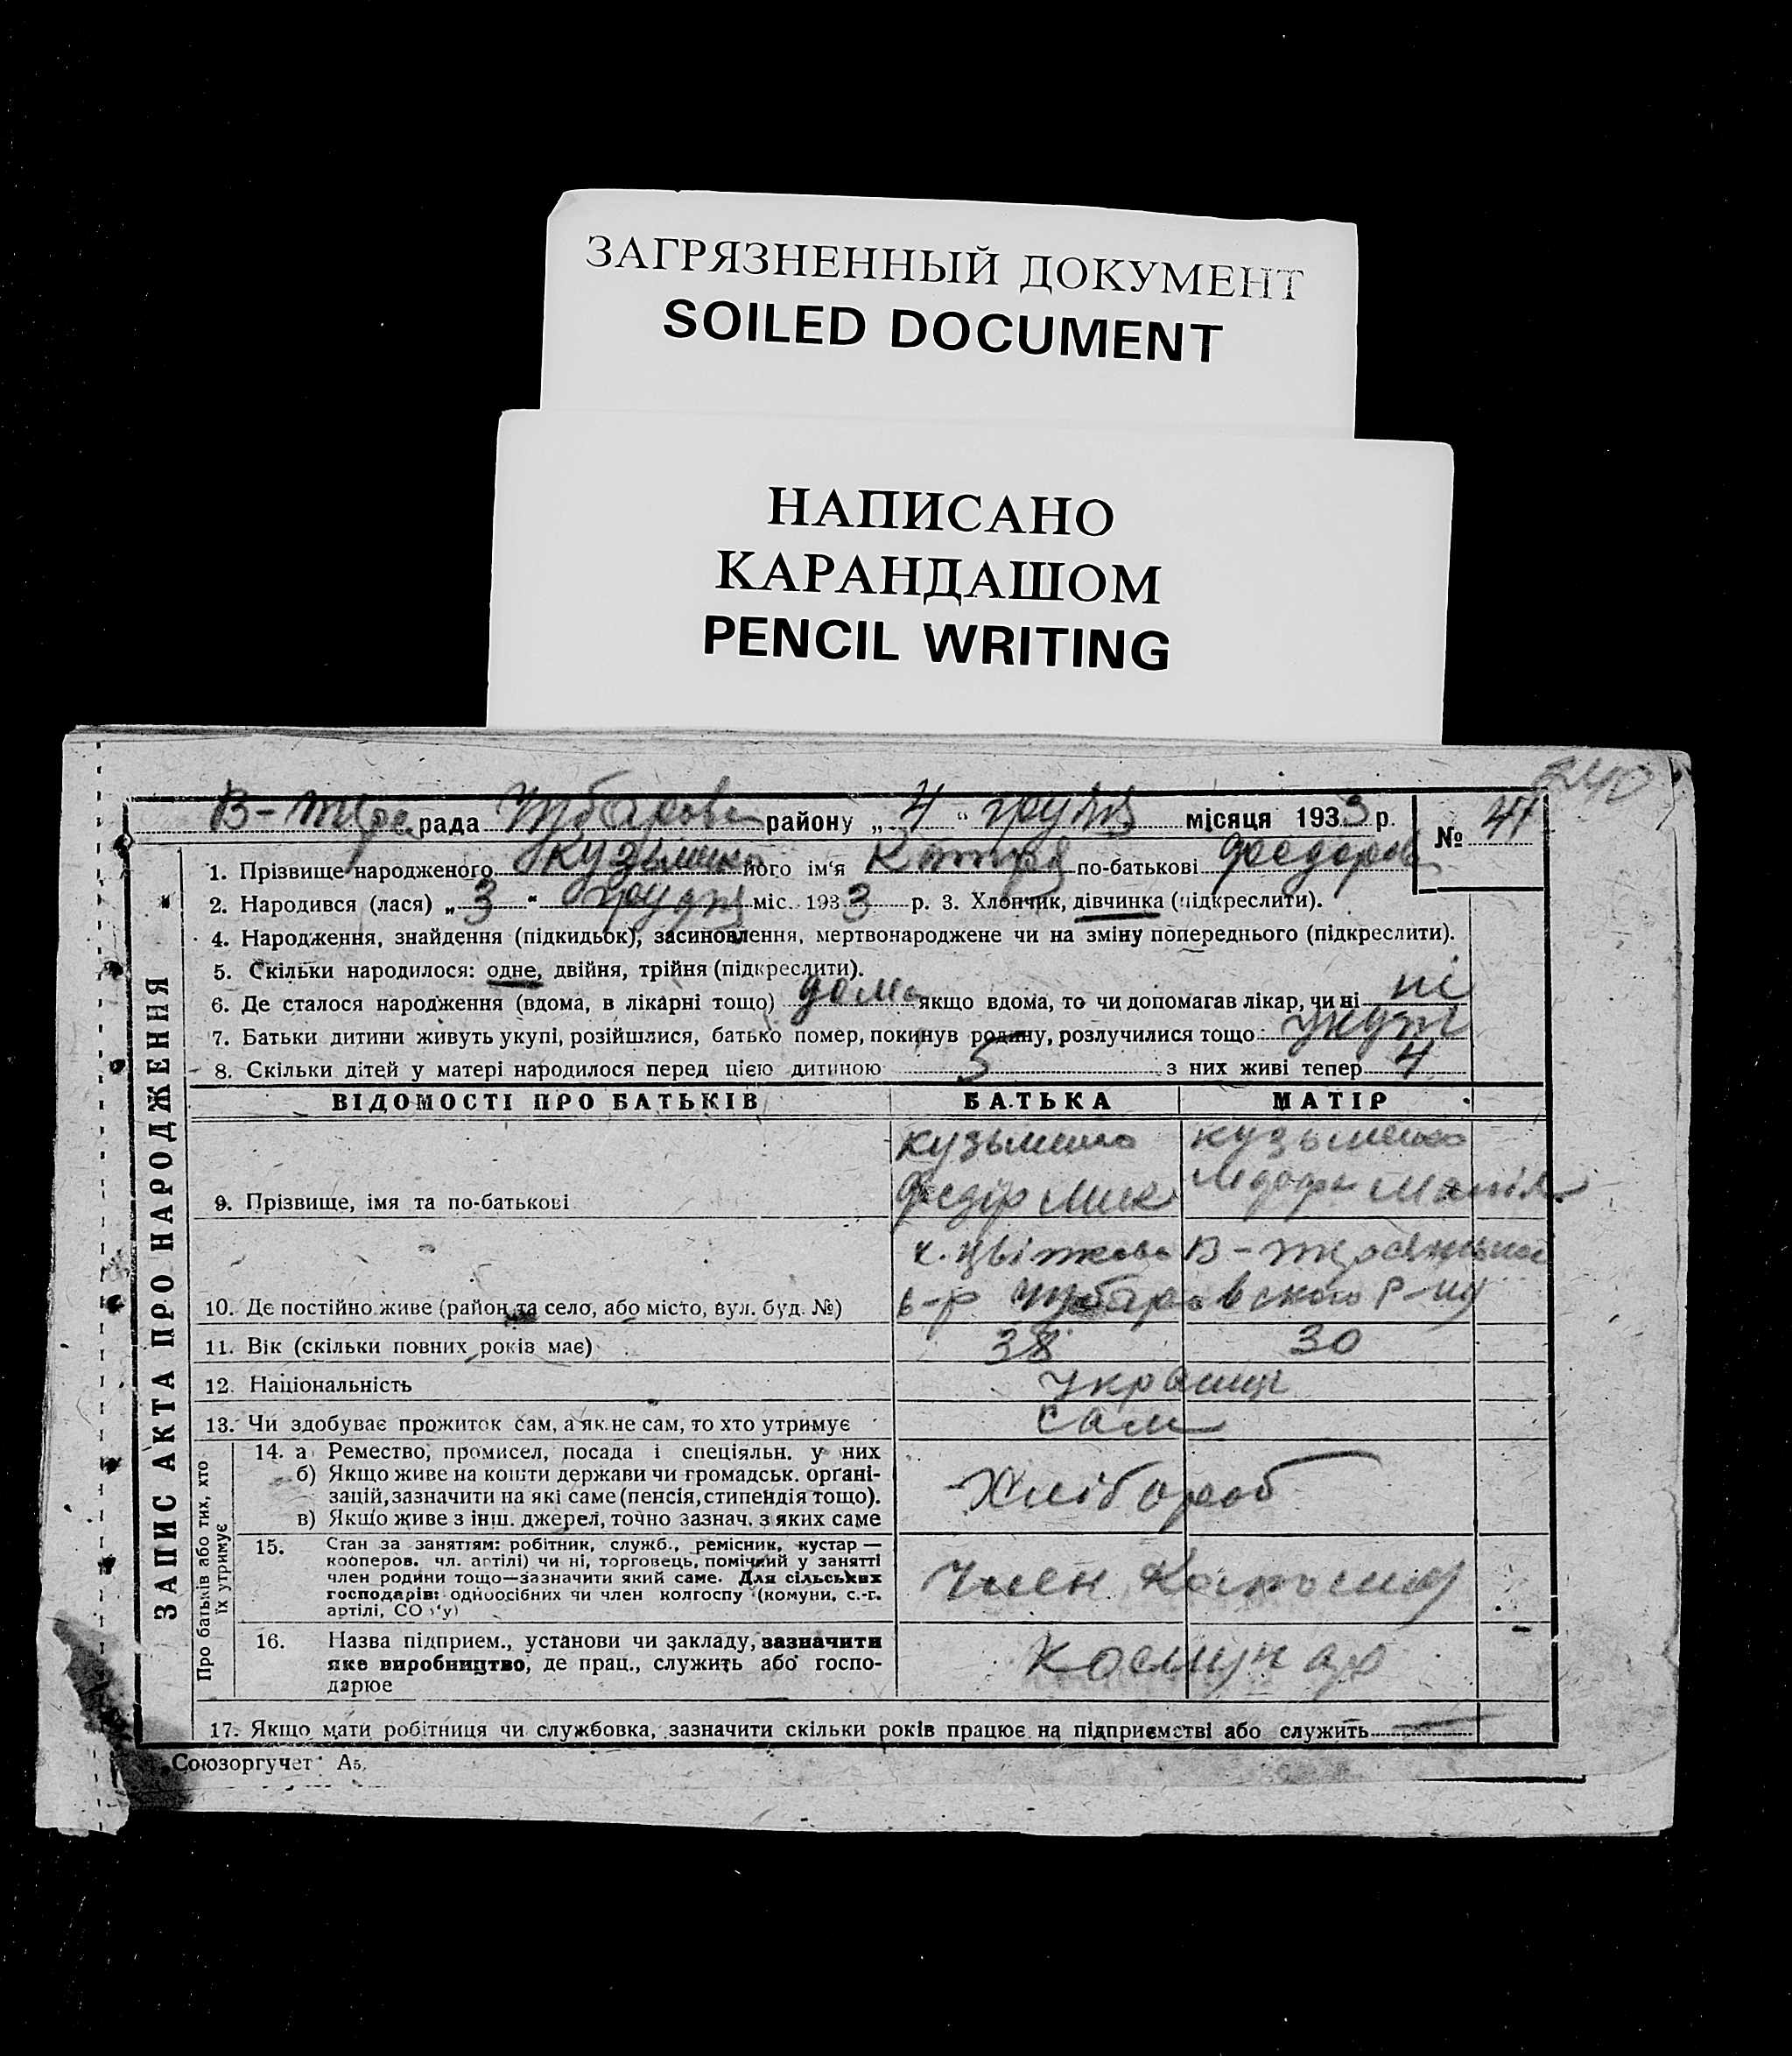 ЗАГРЯЗНЕННЫЙ ДОКУМЕНТ
SOILED DOCUMENT
НАПИСАНО
КАРАНДАШОМ
PENCIL WRITING
240
рада району „ 4 “ місяця 1933 р. № 41
1. Прізвище народженого його ім'я по-батькові Федоров
2. Народився (лася) „ 3 “ міс. 1933 р. 3. Хлопчик, дівчинка (підкреслити).
4. Народження, знайдення (підкидьок), засиновлення, мертвонароджене чи на зміну попереднього (підкреслити).
5. Скільки народилося: одне, двійня, трійня (підкреслити).
6. Де сталося народження (вдома, в лікарні тощо) дома якщо вдома, то чи допомагав лікар, чи ні ні
7. Батьки дитини живуть укупі, розійшлися, батько помер, покинув родину, розлучилися тощо укупі
8. Скільки дітей у матері народилося перед цією дитиною 5 з них живі тепер 4
ВІДОМОСТІ ПРО БАТЬКІВ БАТЬКА МАТІР
Кузьменко Кузьменко
9. Прізвище, імя та по-батькові Федір Мик
10. Де постійно живе (район та село, або місто, вул. буд. №)
11. Вік (скільки повних років має) 38 30
12. Національність
13. Чи здобуває прожиток сам, а як не сам, то хто утримує сам
14. а Ремество, промисел, посада і спеціяльн. у них
б) Якщо живе на кошти держави чи громадськ. органі-
зацій, зазначити на які саме (пенсія, стипендія тощо).
Хлібороб
в) Якщо живе з інш. джерел, точно зазнач. з яких саме
15. Стан за заняттям: робітник, служб., ремісник, кустар —
кооперов. чл. артілі) чи ні, торговець, помічний у занятті
член родини тощо—зазначити який саме. Для сільських
господарів: одноосібних чи член колгоспу (комуни, с.-г.
артілі, СОЗ'у)
Член
16. Назва підприєм., установи чи закладу, зазначити
яке виробництво, де прац., служить або госпо-
дарює
Комунар
17. Якщо мати робітниця чи службовка, зазначити скільки років працює на підприємстві або служить
Союзоргучет А5.
ЗАПИС АКТА ПРО НАРОДЖЕННЯ
Про батьків або тих, хто
їх утримує